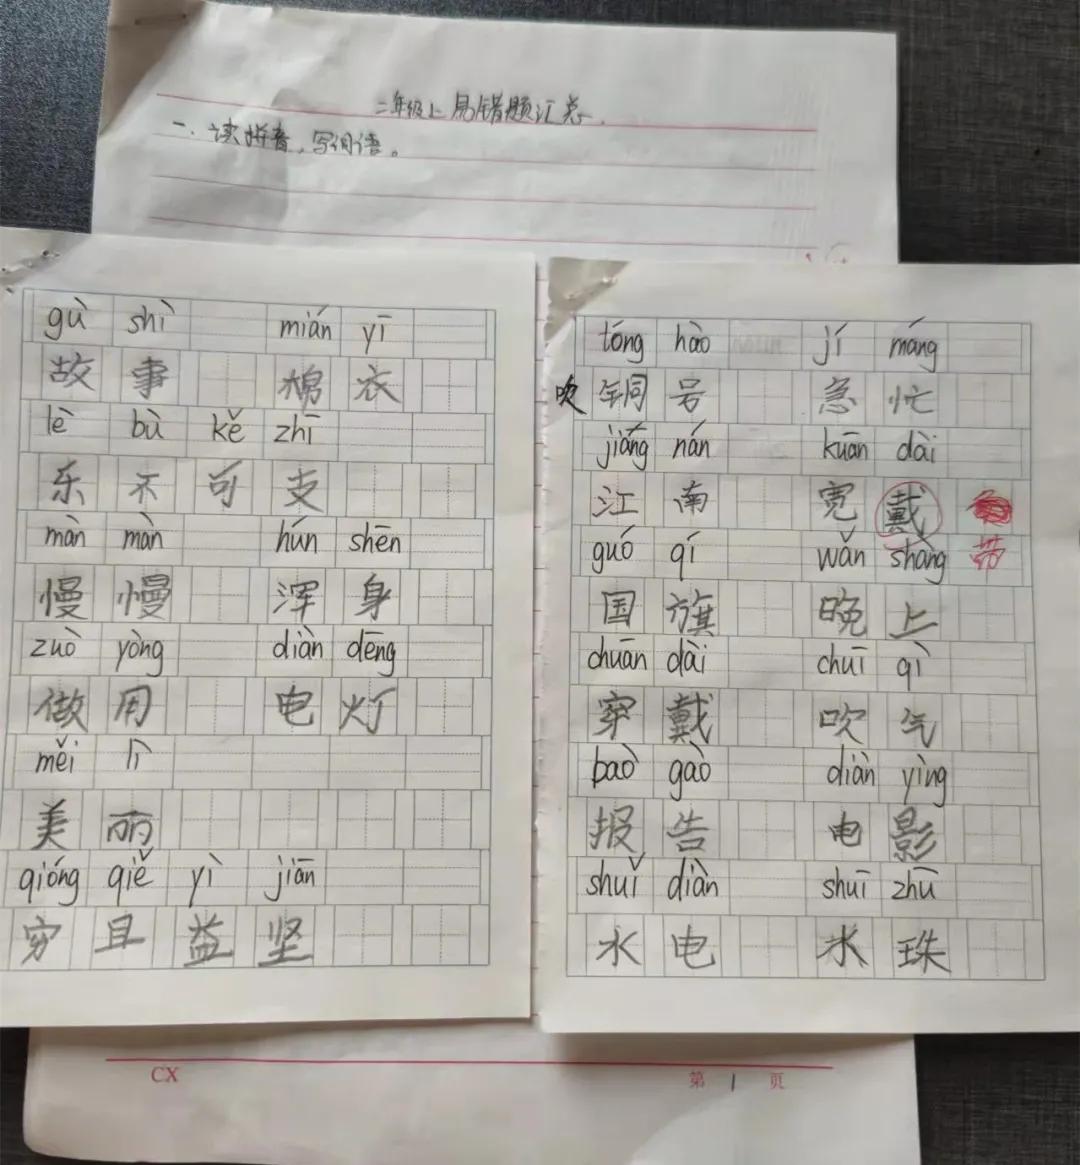 二年级上易错题汇总.
一.读拼音,写词语。
gù shì mián yī
故事 棉衣
lè bù kě zhī
乐不可支
màn màn hún shēn
慢慢 浑身
zuò yòng diàn dēng
做用 电灯
měi lì
美丽
qióng qiě yì jiān
穷且益坚
tóng hào jí máng
吹铜号 急忙
jiāng nán kuān dài
江南 宽戴
guó qí wǎn shàng 带
国旗 晚上
chuān dài chuī qì
穿戴 吹气
baò gaò diàn yǐng
报告 电影
shuǐ diàn shuǐ zhū
水电 水珠
CX 第 1 页